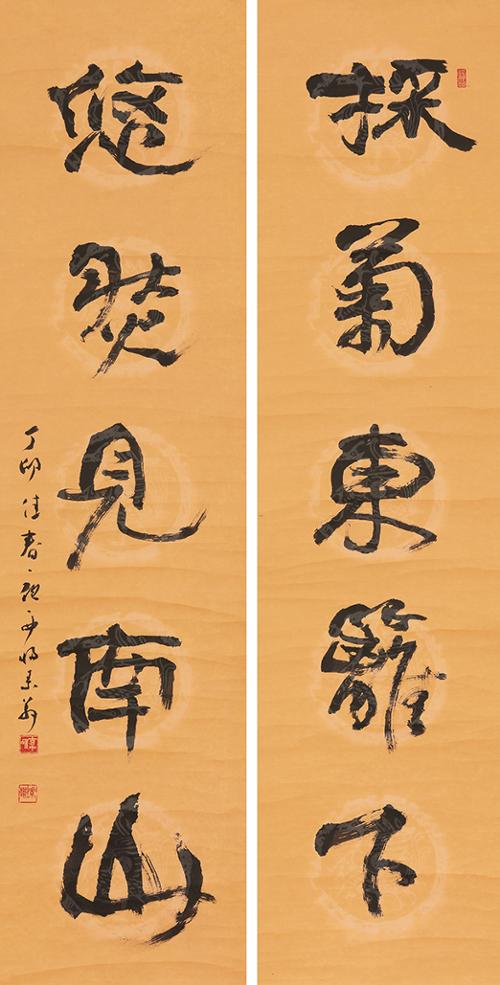 採菊東籬下
悠然見南山
丁卯佳春